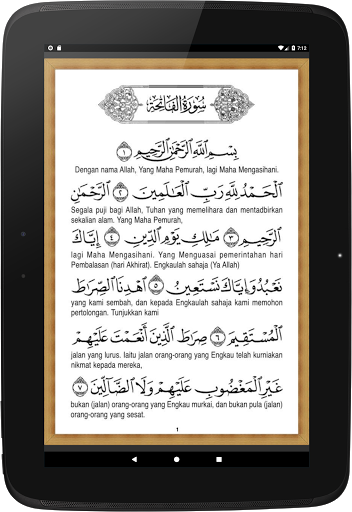 7:12
سُورَةُ الْفَاتِحَةِ
بِسْمِ اللَّهِ الرَّحْمَٰنِ الرَّحِيمِ ١
Dengan nama Allah, Yang Maha Pemurah, lagi Maha Mengasihani.
الْحَمْدُ لِلَّهِ رَبِّ الْعَالَمِينَ ٢ الرَّحْمَٰنِ
Segala puji bagi Allah, Tuhan yang memelihara dan mentadbirkan
sekalian alam. Yang Maha Pemurah,
الرَّحِيمِ ٣ مَالِكِ يَوْمِ الدِّينِ ٤ إِيَّاكَ
lagi Maha Mengasihani. Yang Menguasai pemerintahan hari
Pembalasan (hari Akhirat). Engkaulah sahaja (Ya Allah)
نَعْبُدُ وَإِيَّاكَ نَسْتَعِينُ ٥ اهْدِنَا الصِّرَاطَ
yang kami sembah, dan kepada Engkaulah sahaja kami memohon
pertolongan. Tunjukkan kami
الْمُسْتَقِيمَ ٦ صِرَاطَ الَّذِينَ أَنْعَمْتَ عَلَيْهِمْ
jalan yang lurus. Iaitu jalan orang-orang yang Engkau telah kurniakan
nikmat kepada mereka,
غَيْرِ الْمَغْضُوبِ عَلَيْهِمْ وَلَا الضَّالِّينَ ٧
bukan (jalan) orang-orang yang Engkau murkai, dan bukan pula (jalan)
orang-orang yang sesat.
1